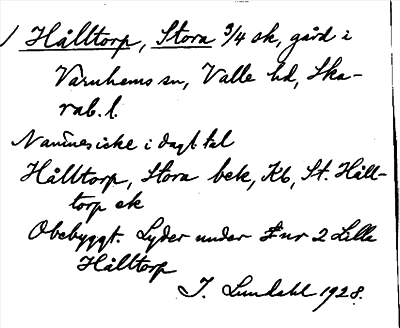 1 Hålltorp, Stora 3/4 sk, gård i
Varnhems sn, Valle hd, Ska-
rab. l.
Namnes icke i dagl tal
Hålltorp, Stora bek, Kb, St. Håll-
torp ek
Obebyggt. Lyder under nr 2 Lilla
Hålltorp
I. Lundahl 1928.